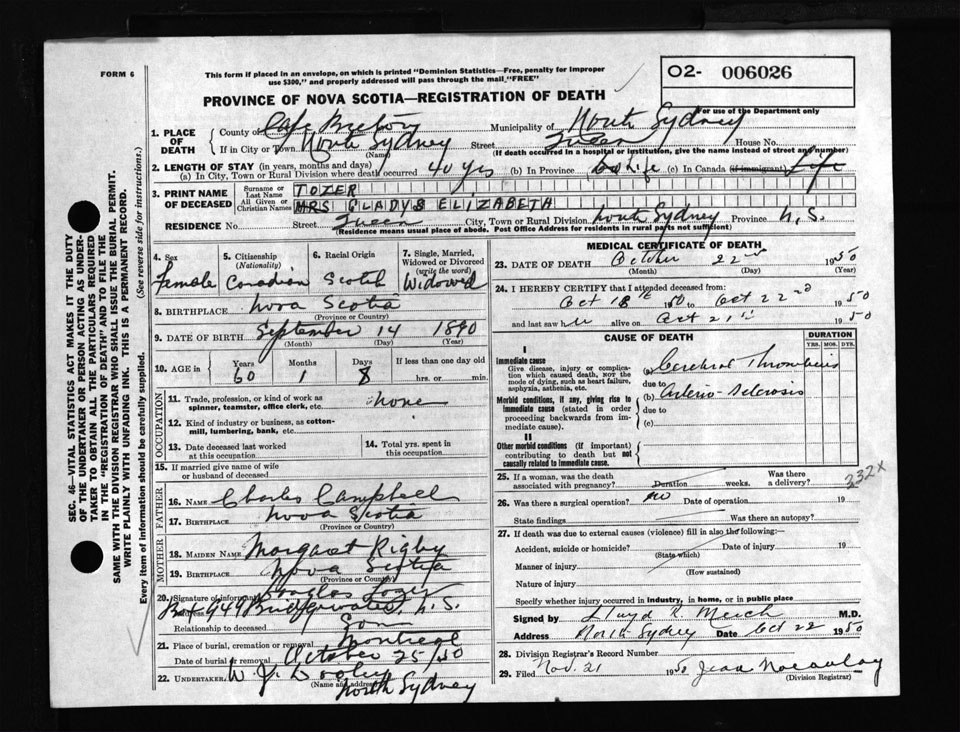 FORM 6
This form if placed in an envelope, on which is printed "Dominion Statistics—Free, penalty for improper
use $300," and properly addressed will pass through the mail "FREE"
O2- 006026
For use of the Department only
PROVINCE OF NOVA SCOTIA—REGISTRATION OF DEATH
1. PLACE OF DEATH { County of Cape Breton Municipality of North Sydney
If in City or Town North Sydney (Name) Street Queen House No.
(If death occurred in a hospital or institution, give the name instead of street and number)
2. LENGTH OF STAY (in years, months and days)
(a) In City, Town or Rural Division where death occurred 40 yrs (b) In Province Life (c) In Canada (if immigrant) Life
3. PRINT NAME OF DECEASED { Surname or Last Name TOZER
All Given or Christian Names MRS GLADYS ELIZABETH
RESIDENCE No. Street Queen City, Town or Rural Division North Sydney Province N.S.
(Residence means usual place of abode. Post Office Address for residents in rural parts not sufficient)
4. Sex Female
5. Citizenship (Nationality) Canadian
6. Racial Origin Scotch
7. Single, Married, Widowed or Divorced (write the word) Widowed
8. BIRTHPLACE Nova Scotia
(Province or Country)
9. DATE OF BIRTH September 14 1890
(Month) (Day) (Year)
10. AGE in { Years 60 Months 1 Days 8 If less than one day old
hrs. or min.
OCCUPATION
11. Trade, profession, or kind of work as spinner, teamster, office clerk, etc. none
12. Kind of industry or business, as cotton-mill, lumbering, bank, etc.
13. Date deceased last worked at this occupation
14. Total yrs. spent in this occupation
15. If married give name of wife or husband of deceased
FATHER
16. NAME Charles Campbell
17. BIRTHPLACE Nova Scotia
(Province or Country)
MOTHER
18. MAIDEN NAME Margaret Rigby
19. BIRTHPLACE Nova Scotia
(Province or Country)
20. Signature of informant Douglas Tozer
Address Box 944 Bridgewater, N.S.
Relationship to deceased Son
21. Place of burial, cremation or removal Montreal
Date of burial or removal October 25/50
22. UNDERTAKER W. J. Dooley
(Name and address) North Sydney
MEDICAL CERTIFICATE OF DEATH
23. DATE OF DEATH October 22nd 1950
(Month) (Day) (Year)
24. I HEREBY CERTIFY that I attended deceased from:
Oct 18th 1950 to Oct 22nd 1950
and last saw her alive on Oct 21st 1950
CAUSE OF DEATH
DURATION
YRS. MOS. DYS.
I
Immediate cause
Give disease, injury or complication which caused death, nor the mode of dying, such as heart failure, asphyxia, asthenia, etc.
(a) Cerebral Thrombosis
due to
Morbid conditions, if any, giving rise to immediate cause (stated in order proceeding backwards from immediate cause).
(b) Arterio-Sclerosis
due to
(c)
II
Other morbid conditions (if important) contributing to death but not causally related to immediate cause.
332X
25. If a woman, was the death associated with pregnancy? Duration weeks. Was there a delivery?
26. Was there a surgical operation? no Date of operation 19
State findings Was there an autopsy?
27. If death was due to external causes (violence) fill in also the following:—
Accident, suicide or homicide? Date of injury 19
(State which)
Manner of injury
(How sustained)
Nature of injury
Specify whether injury occurred in industry, in home, or in public place
Signed by Lloyd R. M.D.
Address North Sydney Date Oct 22 1950
28. Division Registrar's Record Number
29. Filed Nov. 21 1950 Jean Macaulay
(Division Registrar)
SEC. 46—VITAL STATISTICS ACT MAKES IT THE DUTY
OF THE UNDERTAKER OR PERSON ACTING AS UNDERTAKER TO OBTAIN ALL THE PARTICULARS REQUIRED
IN THE "REGISTRATION OF DEATH" AND TO FILE THE
SAME WITH THE DIVISION REGISTRAR WHO SHALL ISSUE THE BURIAL PERMIT.
WRITE PLAINLY WITH UNFADING INK. THIS IS A PERMANENT RECORD.
Every item of information should be carefully supplied. (See reverse side for instructions.)